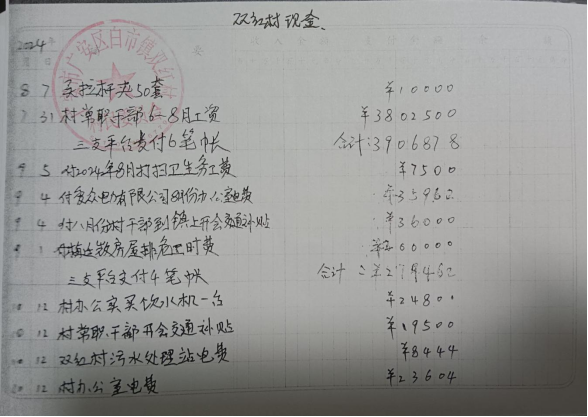 双红村现金
2024年
8 7 买拉杆夹50套 ¥10000
7 31 村常职干部6-8月工资 ¥3802500
三支平台支付6笔帐 合计:3906878
9 5 付2024年8月打扫卫生务工费 ¥7500
9 4 付爱众电力有限公司8月份办公室电费 ¥35962
9 4 付八月份村干部到镇上开会交通补贴 ¥36000
9 1 房屋排危工时费
三支平台支付4笔帐 合计
12 村办公室买饮水机一台 ¥24800
12 村常职干部开会交通补贴 ¥19500
12 双红村污水处理站电费 ¥8444
12 村办公室电费 ¥23604